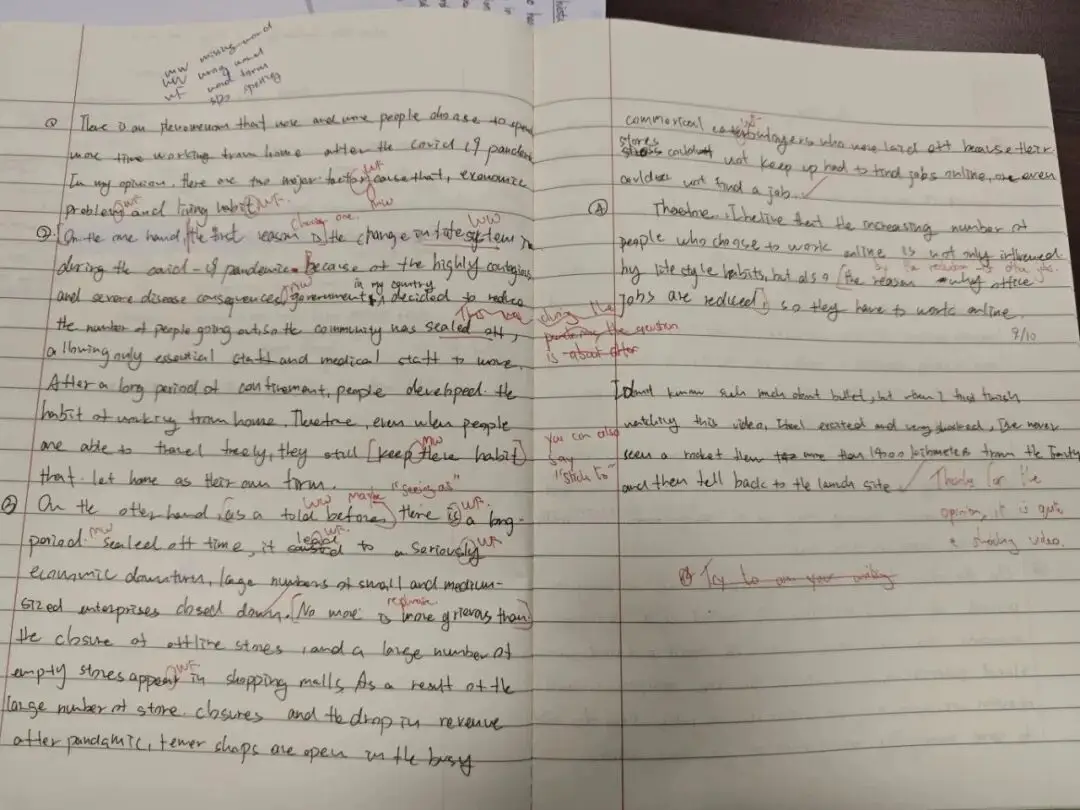 mw missing word
ww wrong word
WF word form
sp spelling
① There is an phenomenon that more and more people choose to spend
more time working from home after the covid 19 pandemic
In my opinion, there are two major factor cause that, economic
WF
mw
problem and living habit.
WF
WF
Choose one.
WW
② [On the one hand, the first reason is the change in life system
during the covid-19 pandemic. Because of the highly contagious
in my country
and severe disease consequences, government decided to reduce
mw
the number of people going out, so the community was sealed off,
allowing only essential staff and medical staff to move.
After a long period of confinement, people developed the
habit of working from home. Therefore, even when people
mw
are able to travel freely, they still [keep there habit]
"seeing as"
that. let home as their own
WW
WF
③ On the other hand, as a told before, there is a long-
mw
lead
WF
WF
period sealed off time, it to a seriously
economic downturn, large numbers of small and medium-
rephrase
sized enterprises closed down. [No more is more grievous than]
the closure of offline stores, and a large number of
WF
empty stores appear in shopping malls. As a result of the
large number of store closures and the drop in revenue
after pandamic, fewer shops are open in the busy
commorical who were laid off because their
stores couldn't not keep up had to find jobs online, or even
could not find a job.
④ Therefore, I belive that the increasing number of
people who choose to work online is not only influenced
by life style habits, but also [the reason why office
jobs are reduced] so they have to work online.
9/10
the question
is about after
I don't know such much about bullet, but when I first finish
watching this video, I feel excited and very shocked, I've never
seen a rocket then more than 1400 kilometers from the Earth
and then fell back to the launch site
you can also
say
"stick to"
Thanks for the
opinion, it is quite
a shocking video.
Try to on your writing